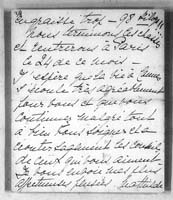 engraisse trop - 98 kilos !!
nous terminons les
et rentrerons à Paris
le 24 de ce mois -
J'espère que la vie à
s'écoule très agréablement
pour vous et que vous
continuez malgré tout
à bien vous soigner et à
écouter sagement les conseils
de ceux qui vous aiment
Je vous envoie mes plus
affectueuses pensées Mathilde